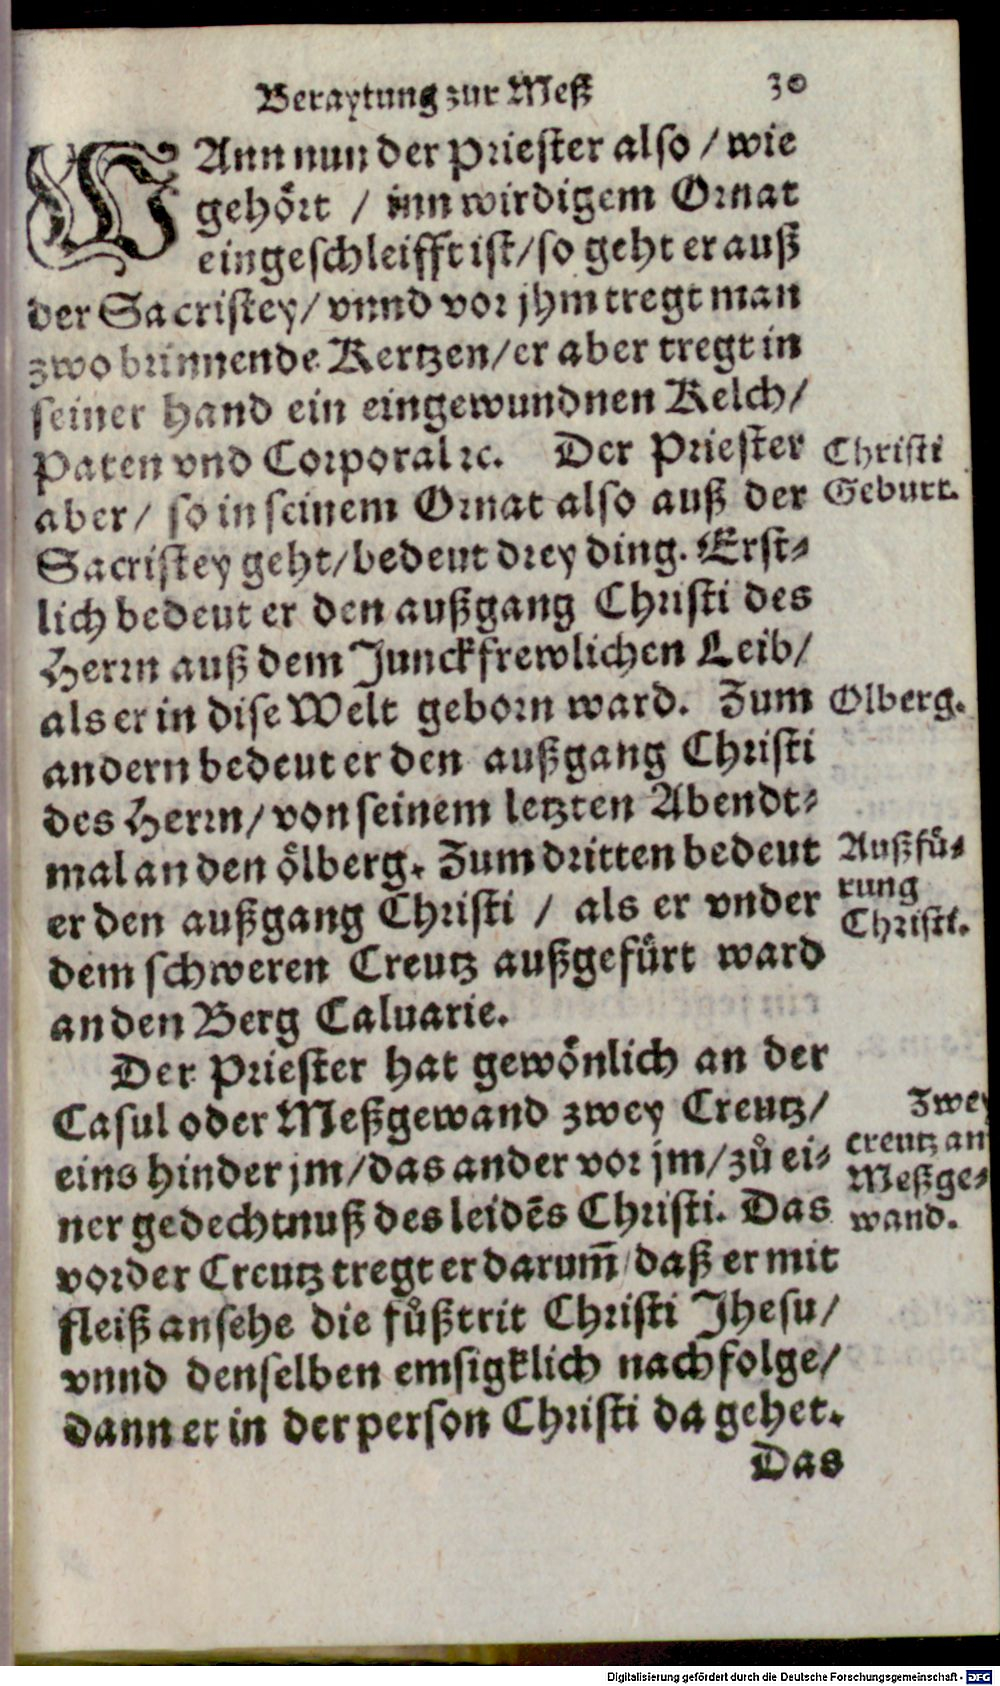 Beraytung zur Meß 30
WAnn nun der Priester also / wie
gehört / inn wirdigem Ornat
eingeschleifft ist / so geht er auß
der Sacristey / vnnd vor jhm tregt man
zwo brinnende Kertzen / er aber tregt in
seiner Hand ein eingewundnen Kelch /
Paten vnd Corporal ꝛc. Der Priester
aber / so in seinem Ornat also auß der
Sacristey geht / bedeut drey ding. Erst⸗
lich bedeut er den außgang Christi des
Herrn auß dem Junckfrewlichen Leib /
als er in dise Welt geborn ward. Zum
andern bedeut er den außgang Christi
des Herrn / von seinem letzten Abendt⸗
mal an den ölberg. Zum dritten bedeut
er den außgang Christi / als er vnder
dem schweren Creutz außgefürt ward
an den Berg Caluarie.
Der Priester hat gewönlich an der
Casul oder Meßgewand zwey Creutz /
eins hinder jm / das ander vor jm / zů ei⸗
ner gedechtnuß des leidēs Christi. Das
vorder Creutz tregt er darum̄ daß er mit
fleiß ansehe die fůßtrit Christi Jhesu /
vnnd denselben emsigklich nachfolge /
dann er in der person Christi da gehet.
Das
Christi
Geburt.
Olberg.
Außfü⸗
rung
Christi.
Zwey
creutz an
Meßge⸗
wand.
Digitalisierung gefördert durch die Deutsche Forschungsgemeinschaft - DFG